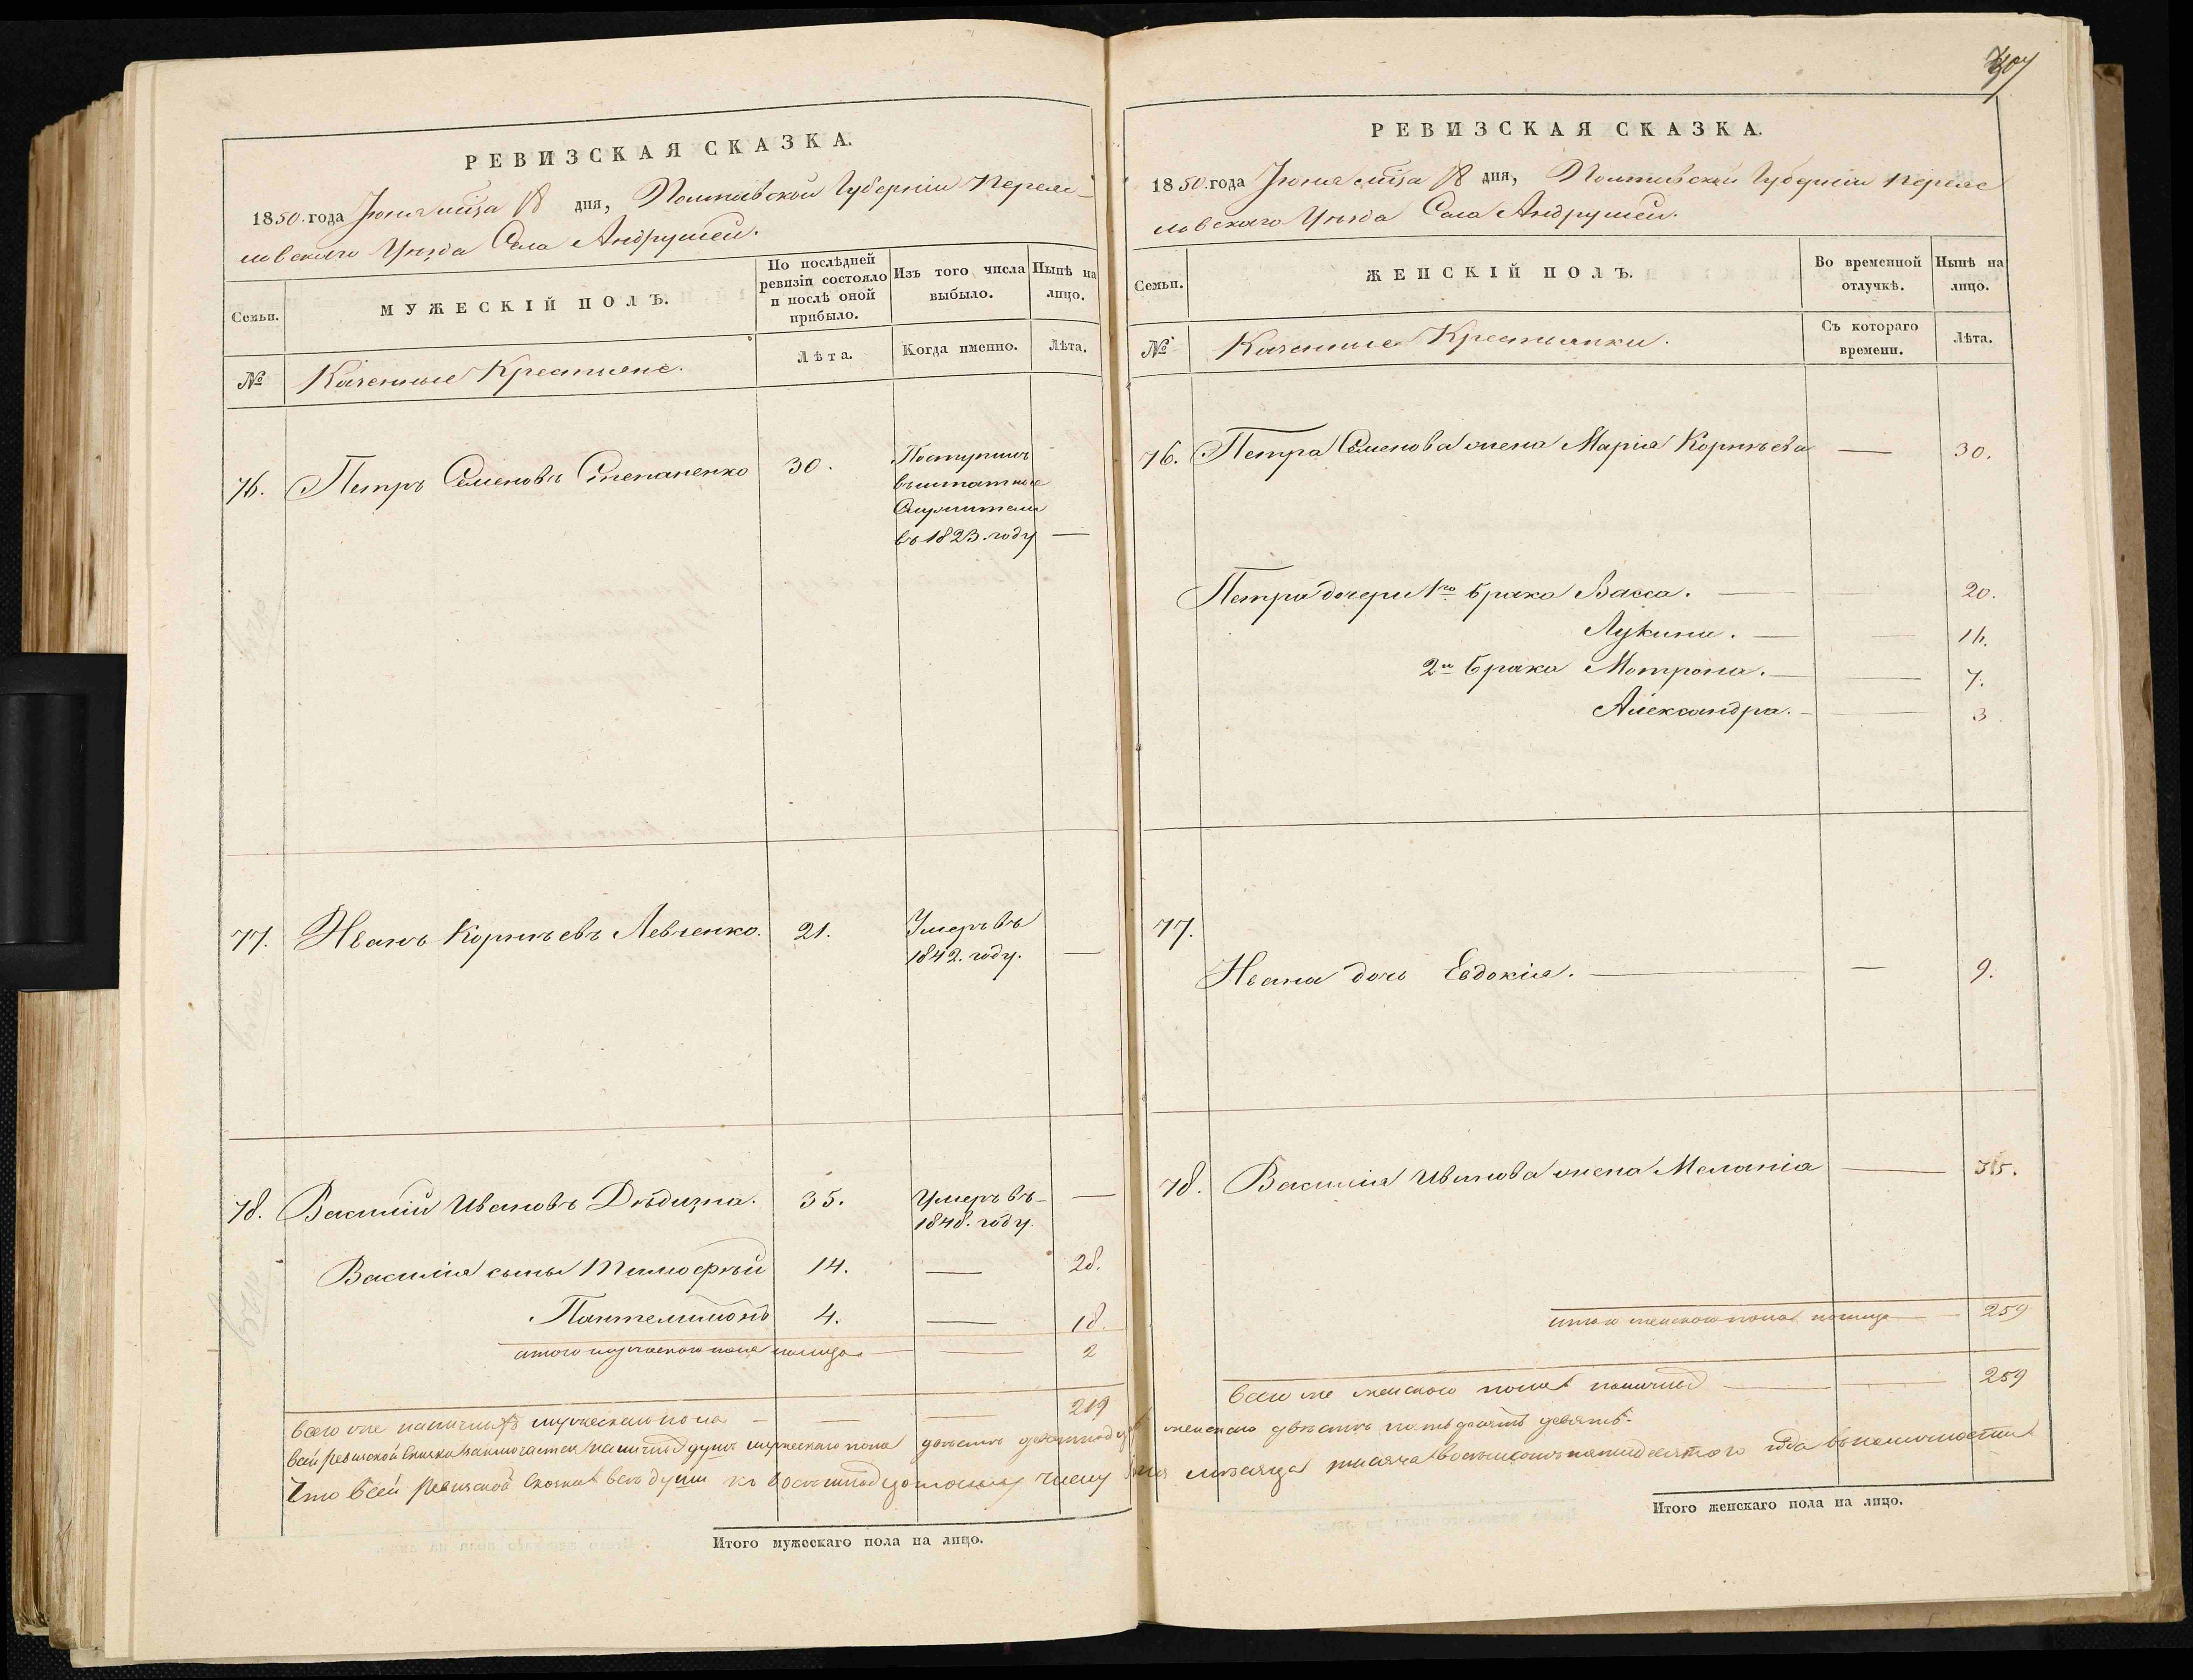 РЕВИЗСКАЯ СКАЗКА.
1850. года Іюня мца 18 дня, Полтавской Губерніи Переяс-
ловскаго Уѣзда Села Андрушей.
Семьи.
МУЖЕСКІЙ ПОЛЪ.
По послѣдней ревизіи состояло и послѣ оной прибыло.
Изъ того числа выбыло.
Нынѣ на лицо.
№
Казенные Крестьяне.
Лѣта.
Когда именно.
Лѣта.
76. Петръ Семеновъ Степаненко 30. Поступилъ
въ штатные
Служители
въ 1823. году —
77. Иванъ Корнѣевъ Левченко. 21. Умеръ въ
1842. году. —
78. Василій Ивановъ Дѣдизна. 35. Умеръ въ —
1848. году.
Василія сыны Тимофѣй 14. — 28.
Пантелимонъ 4. — 18.
итого мужескаго пола налицо — — 2
всего же наличныхъ мужескаго пола — — — 219
РЕВИЗСКАЯ СКАЗКА.
1850. года Іюня мца 18 дня, Полтавской Губерніи Переяс
ловскаго Уѣзда Села Андрушей.
Семьи.
ЖЕНСКІЙ ПОЛЪ.
Во временной отлучкѣ.
Нынѣ на лицо.
№
Казенные Крестьянки.
Съ котораго времени.
Лѣта.
76. Петра Семенова жена Марія Корнѣева — 30.
Петра дочери 1го брака Васса. — — 20.
Лукина. — — 11.
2й брака Мотрона. — — 7.
Александра. — — 3
77.
Ивана дочь Евдокія. — — 9.
78. Василія Иванова жена Меланія —
итого женскаго пола налицо — 259
всего же женскаго пола наличныхъ — — 259
всей ревизской сказки заключается наличныхъ душъ мужескаго пола двѣсти девятнадцать женскаго двѣсти пятьдесятъ девять.
Что въ сей Ревизской Сказки всѣ души къ восемнадцатому числу Іюня мѣсяца тысяча восемьсотъ пятидесятого года въ наличности
Итого мужескаго пола на лицо.
Итого женскаго пола на лицо.